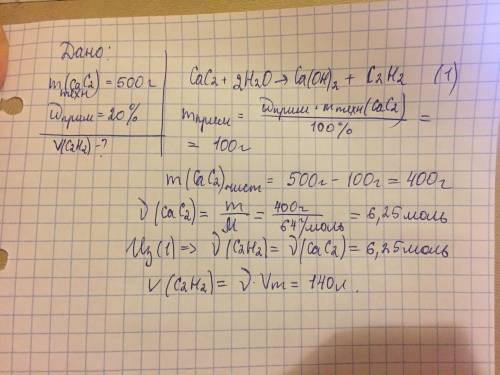 Дано:
m техн (CaC2) = 500г
ω прим = 20%
V(C2H2) - ?
CaC2 + 2H2O → Ca(OH)2 + C2H2 (1)
m прим = ω прим · m техн (CaC2) / 100% =
= 100г
m (CaC2) чист = 500г - 100г = 400г
ν (CaC2) = m / M = 400г / 64г/моль = 6,25 моль
Из (1) => ν (C2H2) = ν (CaC2) = 6,25 моль
V (C2H2) = ν · Vm = 140л.